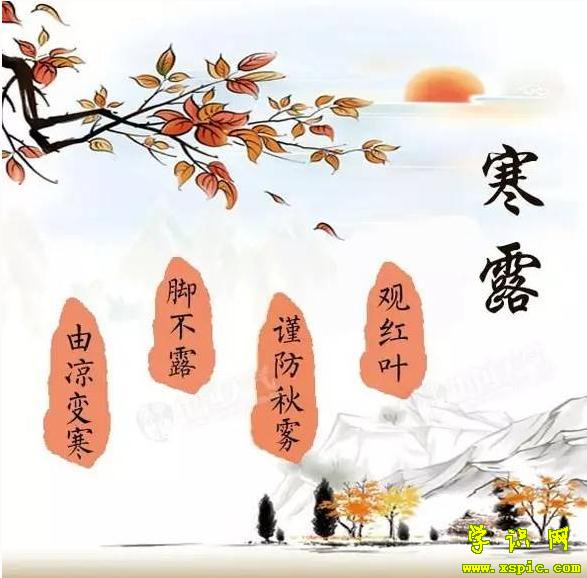 寒露
观红叶
谨防秋雾
脚不露
由凉变寒
学识网
www.xspic.com